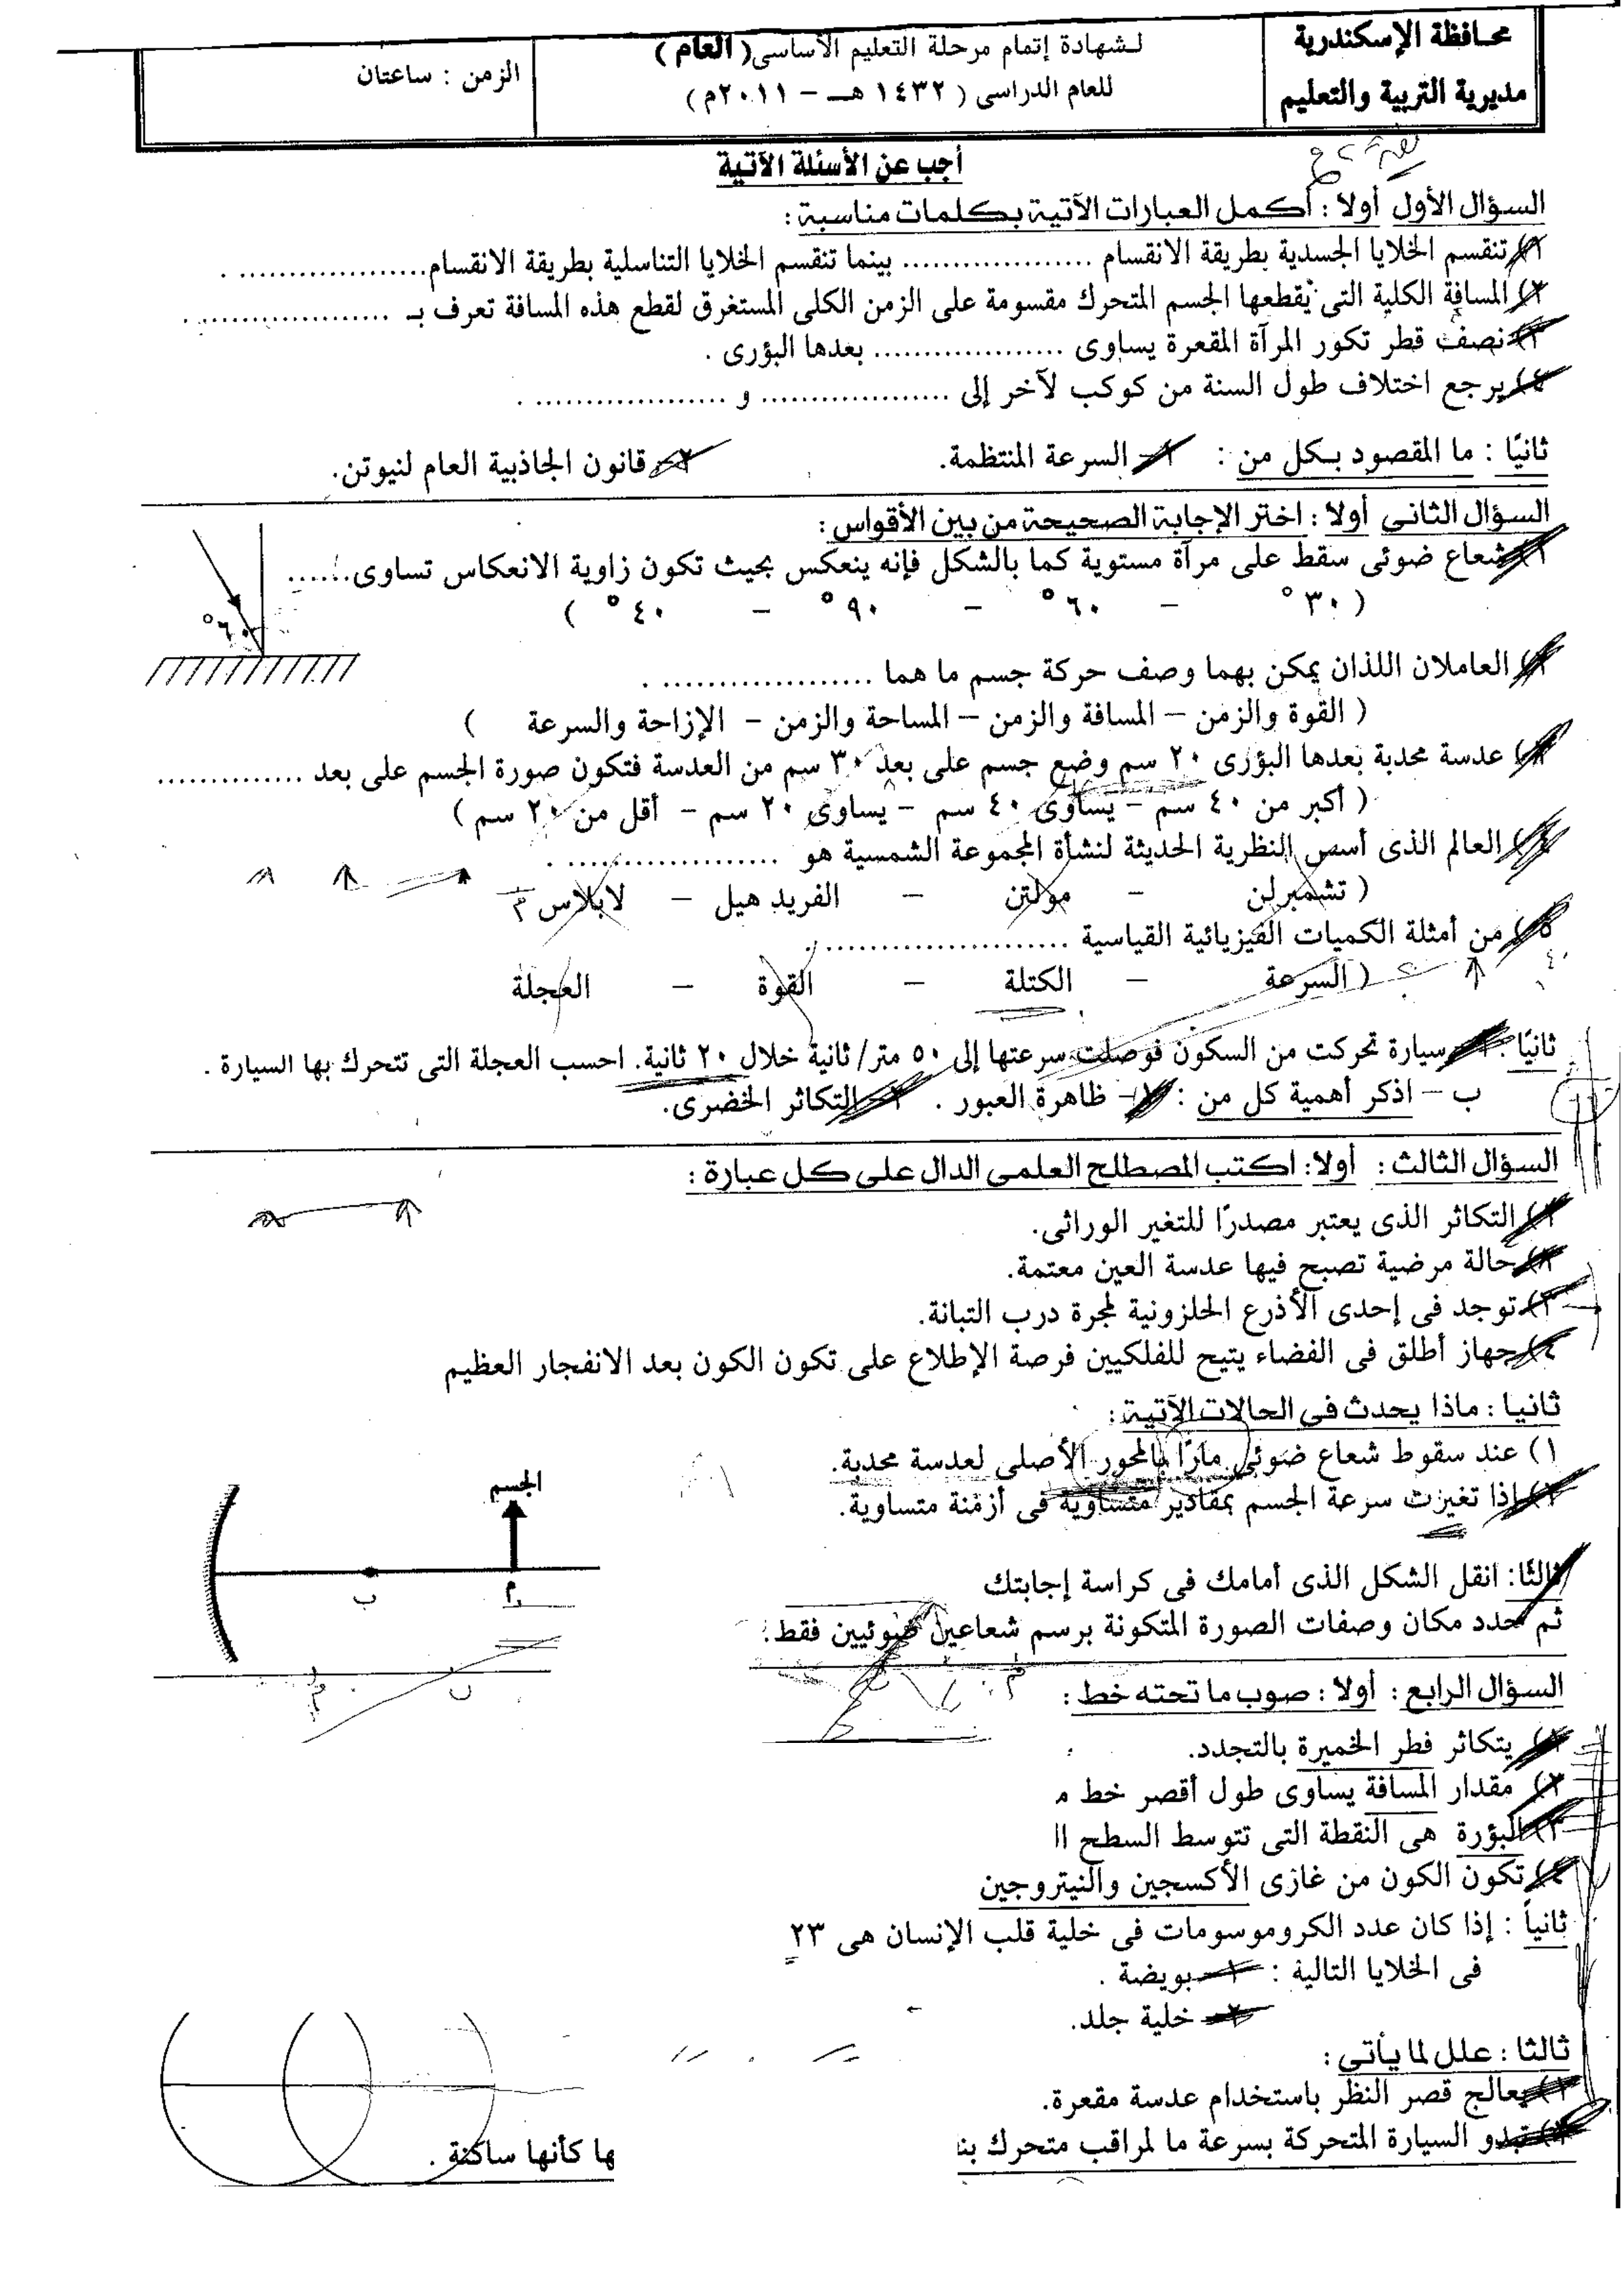 محافظة الإسكندرية
مديرية التربية والتعليم
لشهادة إتمام مرحلة التعليم الأساسى (العام)
للعام الدراسى (١٤٣٢ هـ - ٢٠١١م)
الزمن : ساعتان
أجب عن الأسئلة الآتية
السؤال الأول أولا : أكمل العبارات الآتية بكلمات مناسبة :
١) تنقسم الخلايا الجسدية بطريقة الانقسام .................. بينما تنقسم الخلايا التناسلية بطريقة الانقسام .................. .
٢) المسافة الكلية التى يقطعها الجسم المتحرك مقسومة على الزمن الكلى المستغرق لقطع هذه المسافة تعرف بـ .................. .
٣) نصف قطر تكور المرآة المقعرة يساوى .................. بعدها البؤرى .
٤) يرجع اختلاف طول السنة من كوكب لآخر إلى .................. و .................. .
ثانيًا : ما المقصود بكل من : ١- السرعة المنتظمة. ٢- قانون الجاذبية العام لنيوتن.
السؤال الثانى أولا : اختر الإجابة الصحيحة من بين الأقواس :
١) شعاع ضوئى سقط على مرآة مستوية كما بالشكل فإنه ينعكس بحيث تكون زاوية الانعكاس تساوى ......
( ٣٠° - ٦٠° - ٩٠° - ٤٠° )
٦٠°
٢) العاملان اللذان يمكن بهما وصف حركة جسم ما هما .................. .
( القوة والزمن - المسافة والزمن - المساحة والزمن - الإزاحة والسرعة )
٣) عدسة محدبة بعدها البؤرى ٢٠ سم وضع جسم على بعد ٣٠ سم من العدسة فتكون صورة الجسم على بعد ..............
( أكبر من ٤٠ سم - يساوى ٤٠ سم - يساوى ٢٠ سم - أقل من ٢٠ سم )
٤) العالم الذى أسس النظرية الحديثة لنشأة المجموعة الشمسية هو .................. .
( تشمبرلن - مولتن - الفريد هيل - لابلاس
٥) من أمثلة الكميات الفيزيائية القياسية .................. .
( السرعة - الكتلة - القوة - العجلة
ثانيًا : أ- سيارة تحركت من السكون فوصلت سرعتها إلى ٥٠ متر/ ثانية خلال ٢٠ ثانية. احسب العجلة التى تتحرك بها السيارة .
ب - اذكر أهمية كل من : ١- ظاهرة العبور . ٢- التكاثر الخضرى.
السؤال الثالث : أولا: اكتب المصطلح العلمى الدال على كل عبارة :
١) التكاثر الذى يعتبر مصدرًا للتغير الوراثى.
٢) حالة مرضية تصبح فيها عدسة العين معتمة.
٣) توجد فى إحدى الأذرع الحلزونية لمجرة درب التبانة.
٤) جهاز أطلق فى الفضاء يتيح للفلكيين فرصة الإطلاع على تكون الكون بعد الانفجار العظيم
ثانيا : ماذا يحدث فى الحالات الآتية :
١) عند سقوط شعاع ضوئى مارًا بالمحور الأصلى لعدسة محدبة.
٢) إذا تغيرت سرعة الجسم بمقادير متساوية فى أزمنة متساوية.
الجسم
ب
م
ثالثا: انقل الشكل الذى أمامك فى كراسة إجابتك
ثم حدد مكان وصفات الصورة المتكونة برسم شعاعين ضوئيين فقط.
السؤال الرابع : أولا : صوب ما تحته خط :
١) يتكاثر فطر الخميرة بالتجدد.
٢) مقدار المسافة يساوى طول أقصر خط م
٣) البؤرة هى النقطة التى تتوسط السطح ال
٤) تكون الكون من غازى الأكسجين والنيتروجين
ثانياً : إذا كان عدد الكروموسومات فى خلية قلب الإنسان هى ٢٣
فى الخلايا التالية : ١- بويضة .
٢- خلية جلد.
ثالثا : علل لما يأتى :
١) يعالج قصر النظر باستخدام عدسة مقعرة.
٢) تبدو السيارة المتحركة بسرعة ما لمراقب متحرك بن ها كأنها ساكنة .